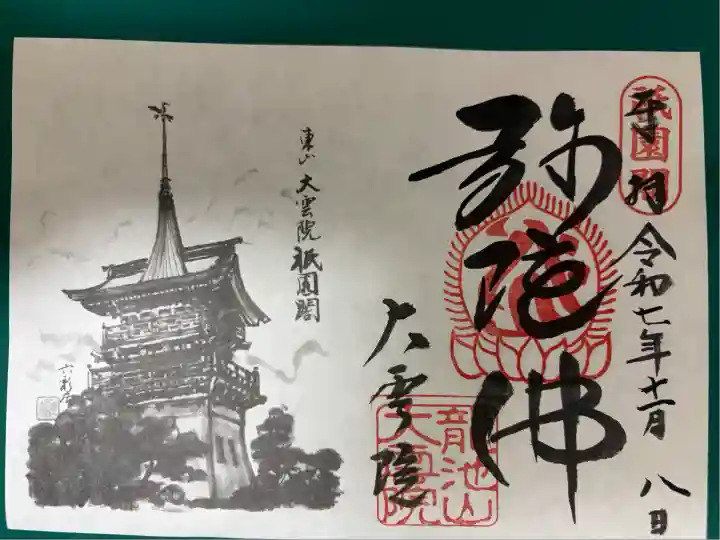 奉拝
祇園閣
令和七年十一月八日
弥陀佛
龍池山
大雲院
大雲院
東山 大雲院祇園閣